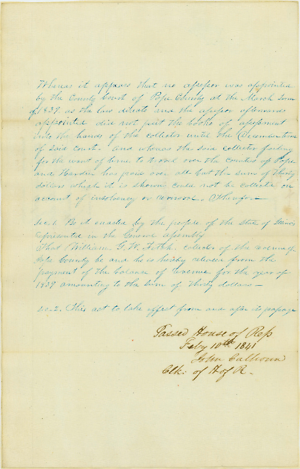 Whereas it appears that no assessor was appointed
by the County Court of Pope County at the March Term
of 1839 as the law directs and the assessor afterwards
appointed did not put the Books of assessment
into the hands of the collector until the
of said court. and whereas the said collector
for the want of time to over the counties of Pope
and Hardin has given over all but the sum of Thirty
dollars which it is shown could not be collected on
account of insolvency or removal, Therefore
Sec 1. Be it enacted by the people of the State of Illinois
represented in the General Assembly
That William collector of the revenue of
Pope County be and he is hereby released from the
payment of the balance of Revenue for the year of
1839 amounting to the sum of Thirty dollars
Sec 2. This act to take effect from and after its passage
Passed House of Reps
Feby 10th 1841
John Calhoun
Clk: of H of R.